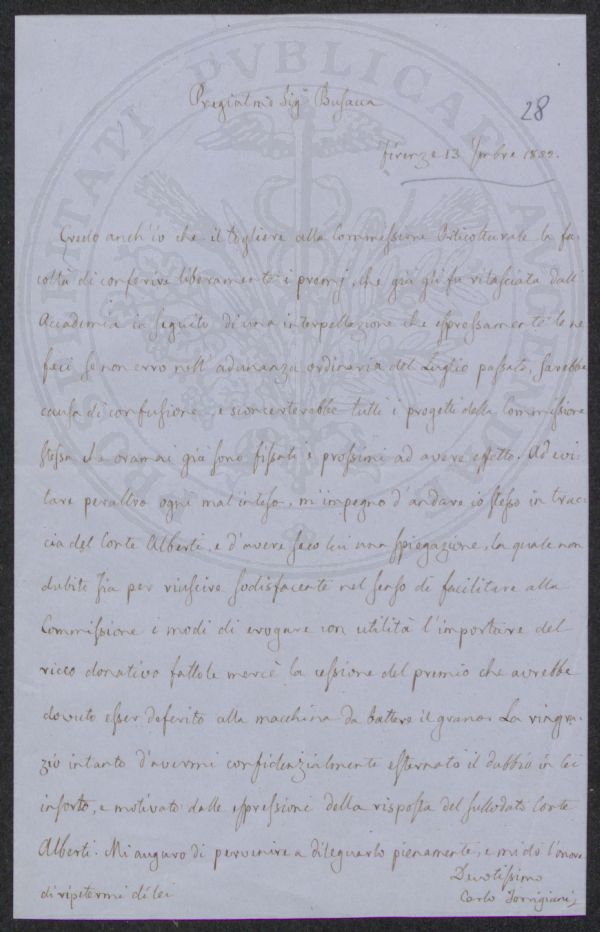 Pregiatmo Sigr Busacca
28
Firenze 13 9mbre 1852.
Credo anch'io che il togliere alla Commissione Orticolturale la fa-
coltà di conferire liberamente i premj, che già gli fu rilasciata dall'
Accademia in seguito di una interpellazione che espressamente le ne
feci se non erro nell'adunanza ordinaria del Luglio passato, sarebbe
causa di confusione, e sconcerterebbe tutti i progetti della Commissione
stessa che oramai già sono fissati e prossimi ad avere effetto. Ad evi-
tare peraltro ogni mal'inteso, m'impegno d'andare io stesso in trac-
cia del Conte Alberti, e d'avere seco lui una spiegazione, la quale non
dubito sia per riuscire sodisfacente nel senso di facilitare alla
Commissione i modi di erogare con utilità l'importare del
ricco donativo fattole mercè la cessione del premio che avrebbe
dovuto esser deferito alla macchina da battere il grano. La ringra-
zio intanto d'avermi confidenzialmente esternato il dubbio in lei
insorto, e motivato dalle espressioni della risposta del sullodato Conte
Alberti. Mi auguro di pervenire a dileguarlo pienamente, e mi dò l'onore
di ripetermi di lei
Devotissimo
Carlo Torrigiani
PVBLICAE